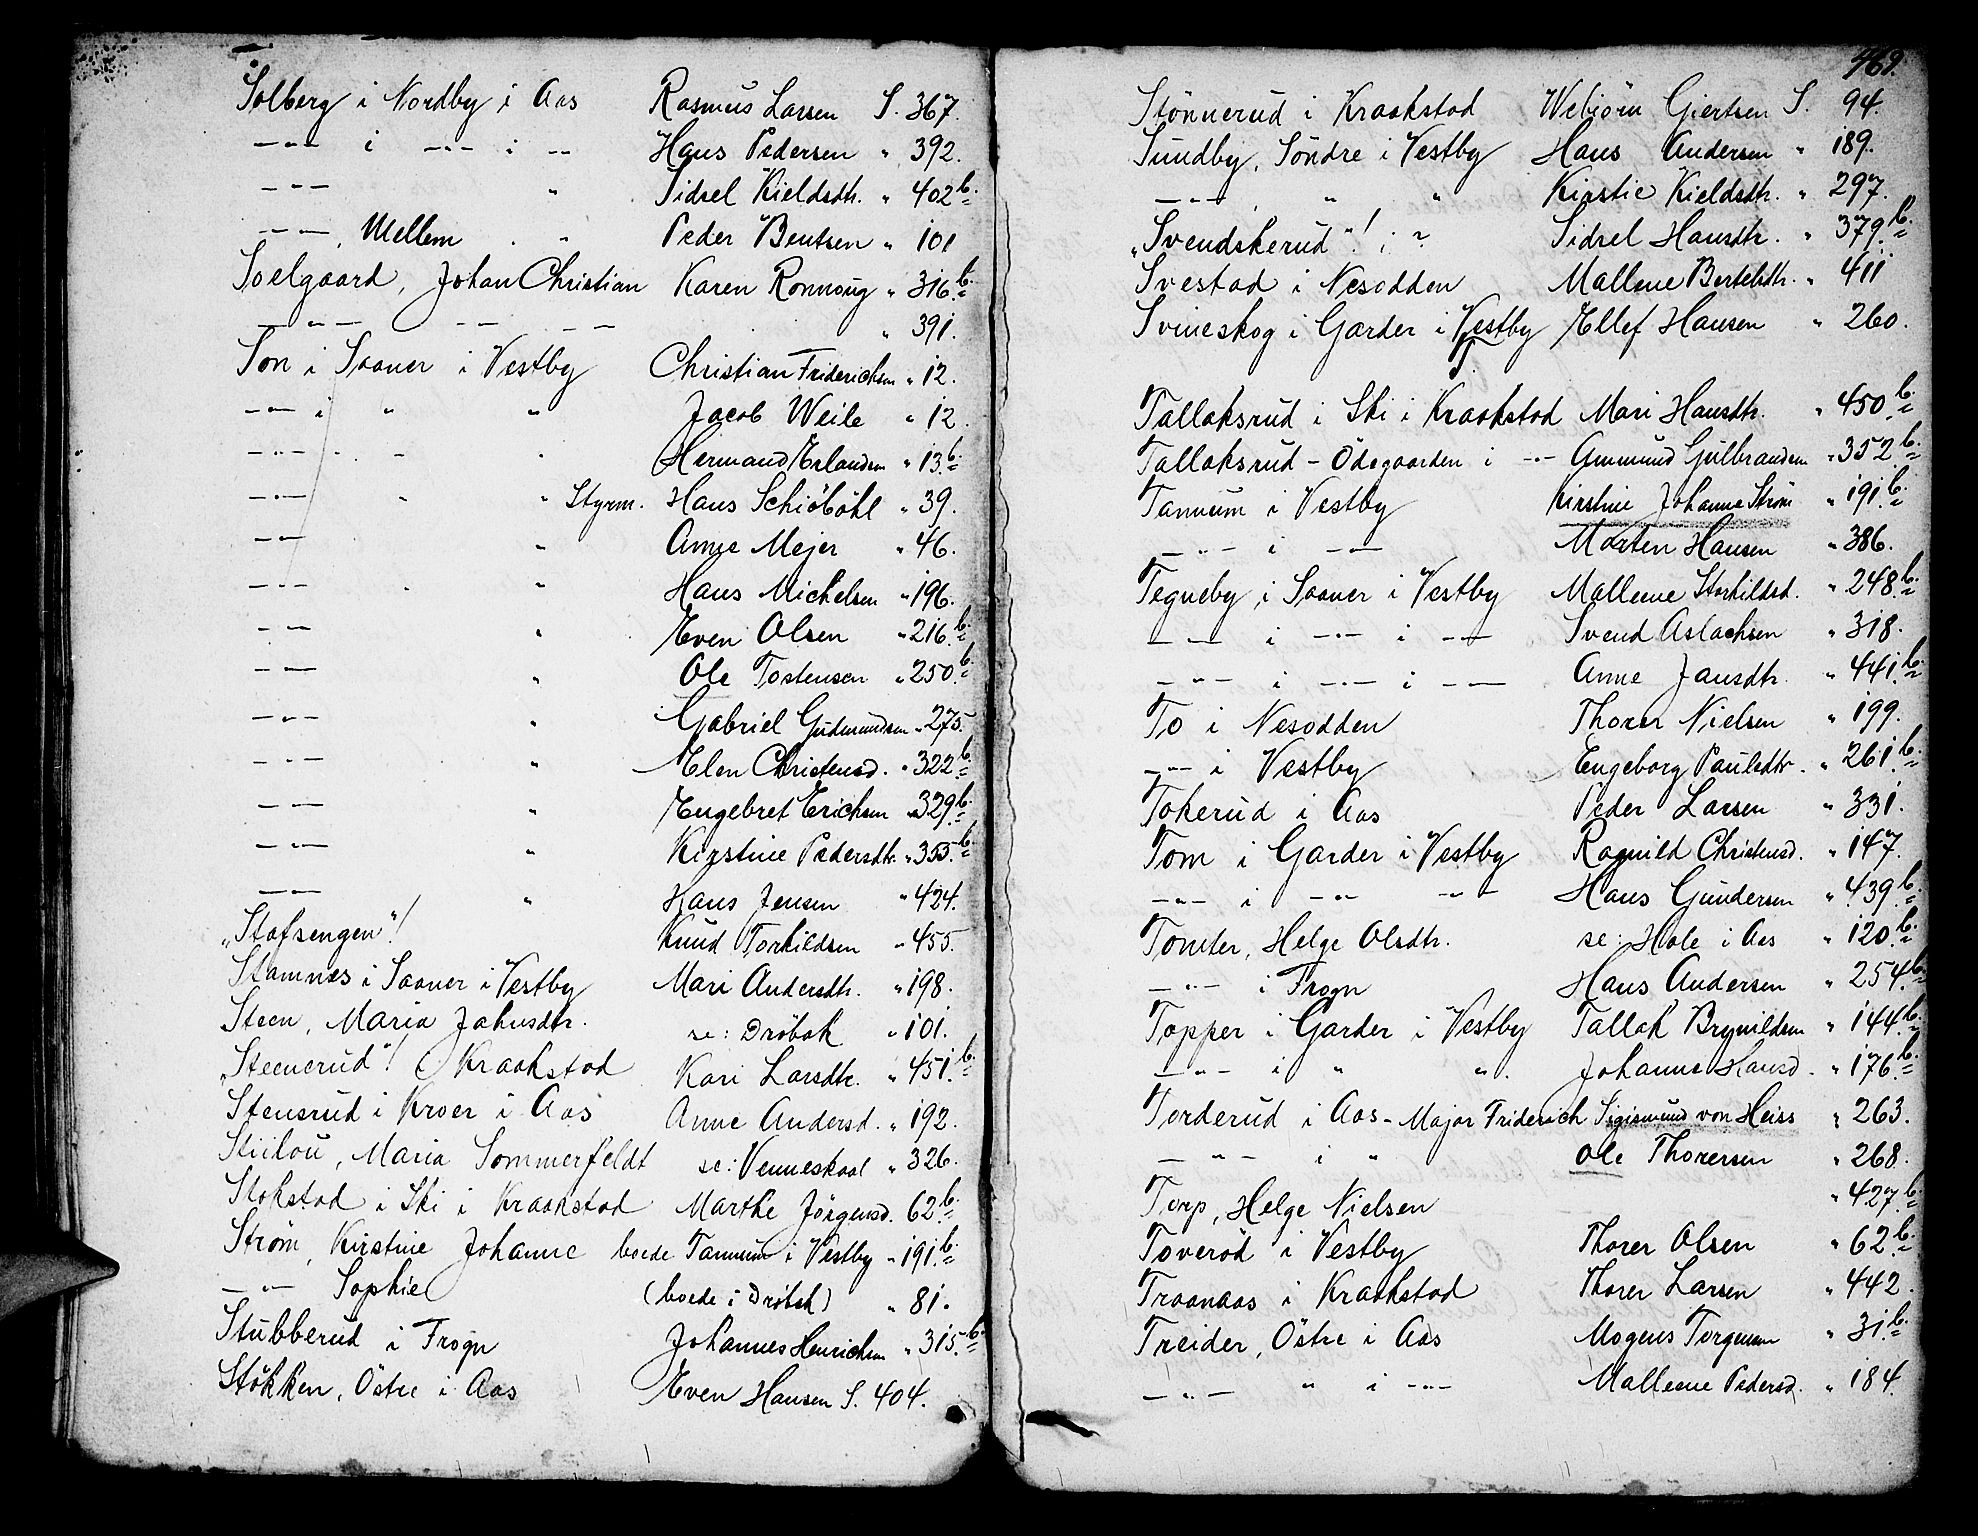 Solberg i Nordby i Aas Rasmus Larsen S. 367.
-"- i -"- i -- Hans Pedersen " 392.
-"- " Sidsel Kieldsdtr. " 402 b.
-"-, Mellem " Peder Bentsen " 101
Soelgaard, Johan Christian Karen Ronnoug " 316 b.
-"- -- -- " 391.
Son i Saaner i Vestby Christian Friderichsen " 12.
-"- i " " Jacob Weile " 12.
-"- " " Hermand Erlandsen " 13 b.
-"- " " Styrm. Hans Schiöböhl " 39.
-"- " Anne Mejer " 46.
-"- " " Hans Michelsen " 196.
-"- " Even Olsen " 216 b.
-"- " Ole Tostensen " 250 b.
-"- " Gabriel Gudmundsen " 275.
-"- " Elen Christensd. " 322 b.
-"- " Engebret Erichsen " 329 b.
-"- " Kirstine Pedersdtr. " 355 b.
-"- " Hans Jensen " 424.
"Stafsengen"! Knud Torkildsen " 455.
Stamnæs i Saaner i Vestby Mari Andersdtr. " 198.
Steen, Maria Jahnsdtr. se: Dröbak " 101.
"Steenerud"! Kraakstad Kari Larsdtr. " 451 b.
Stensrud i Kroer i Aas Anne Andersd. " 192.
Stiikou, Maria Sommerfeldt se: Venneskaal " 326.
Stokstad i Ski i Kraakstad Marthe Jörgensd. 62 b.
Strøm, Kirstine Johanne boede Tannum i Vestby " 191 b.
-"- Sophie (boede i Dröbak) " 81.
Stubberud i Frogn Johannes Henrichsen " 315 b.
Stökken, Östre i Aas Even Hansen S. 404.
469.
Stönnerud i Kraakstad Webiörn Giertsen S. 94.
Sundby, Söndre i Vestby Hans Andersen " 189.
-"- , " " Kirstie Kieldsdtr. " 297.
"Svendskerud"! i ? Sidsel Hansdtr. " 379 b.
Svestad i Nesodden Mallene Bertelsdtr. " 411
Svineskog i Garder i Vestby Ellef Hansen " 260.
T.
Tallaksrud i Ski i Kraakstad Mari Hansdtr. " 450 b.
Tallaksrud - Ödegaarden i -"- Ammund Gulbrandsen " 352 b.
Tannum i Vestby Kirstine Johanne Ström " 191 b.
-"- i -- Morten Hansen " 386.
Tegneby, i Saaner i Vestby Malleene Storkildsd. " 248 b.
-- i -"- i -- Svend Aslachsen " 318.
-"- i -"- i -- Anne Jansdtr. " 441 b.
To i Nesodden Thorer Nielsen " 199.
-"- i Vestby Engeborg Paulsdtr. " 261 b.
Tokerud i Aas Peder Larsen " 331.
Tom i Garder i Vestby Ragnild Christensd. " 147.
-"- i -"- -"- Hans Gundersen " 439 b.
Tomter, Helge Olsdtr. se: Hole i Aas " 120 b.
-"- i Frogn Hans Andersen " 254 b.
Topper i Garder i Vestby Tallak Brynildsen " 144 b.
-"- i " ". Johanne Hansd. " 176 b.
Torderud i Aas - Major Friderich Sigismund von Heiss " 263.
-"- i " Ole Thorersen " 268.
Torp, Helge Nielsen " 427 b.
Toveröd i Vestby Thorer Olsen " 62 b.
Traanaas i Kraakstad Thorer Larsen " 442.
Treider, Östre i Aas Mogens Torgersen " 31 b.
-"- " i -"- Malleene Pedersd. " 184.